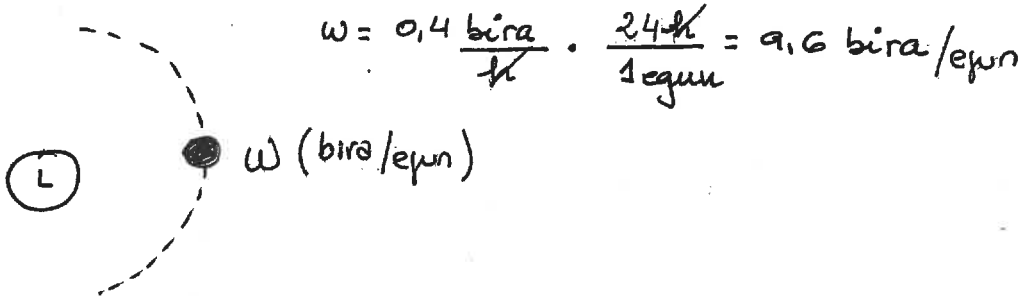 ω = 0,4 bira/h · 24h/1egun = 9,6 bira/egun
ω (bira/egun)
L